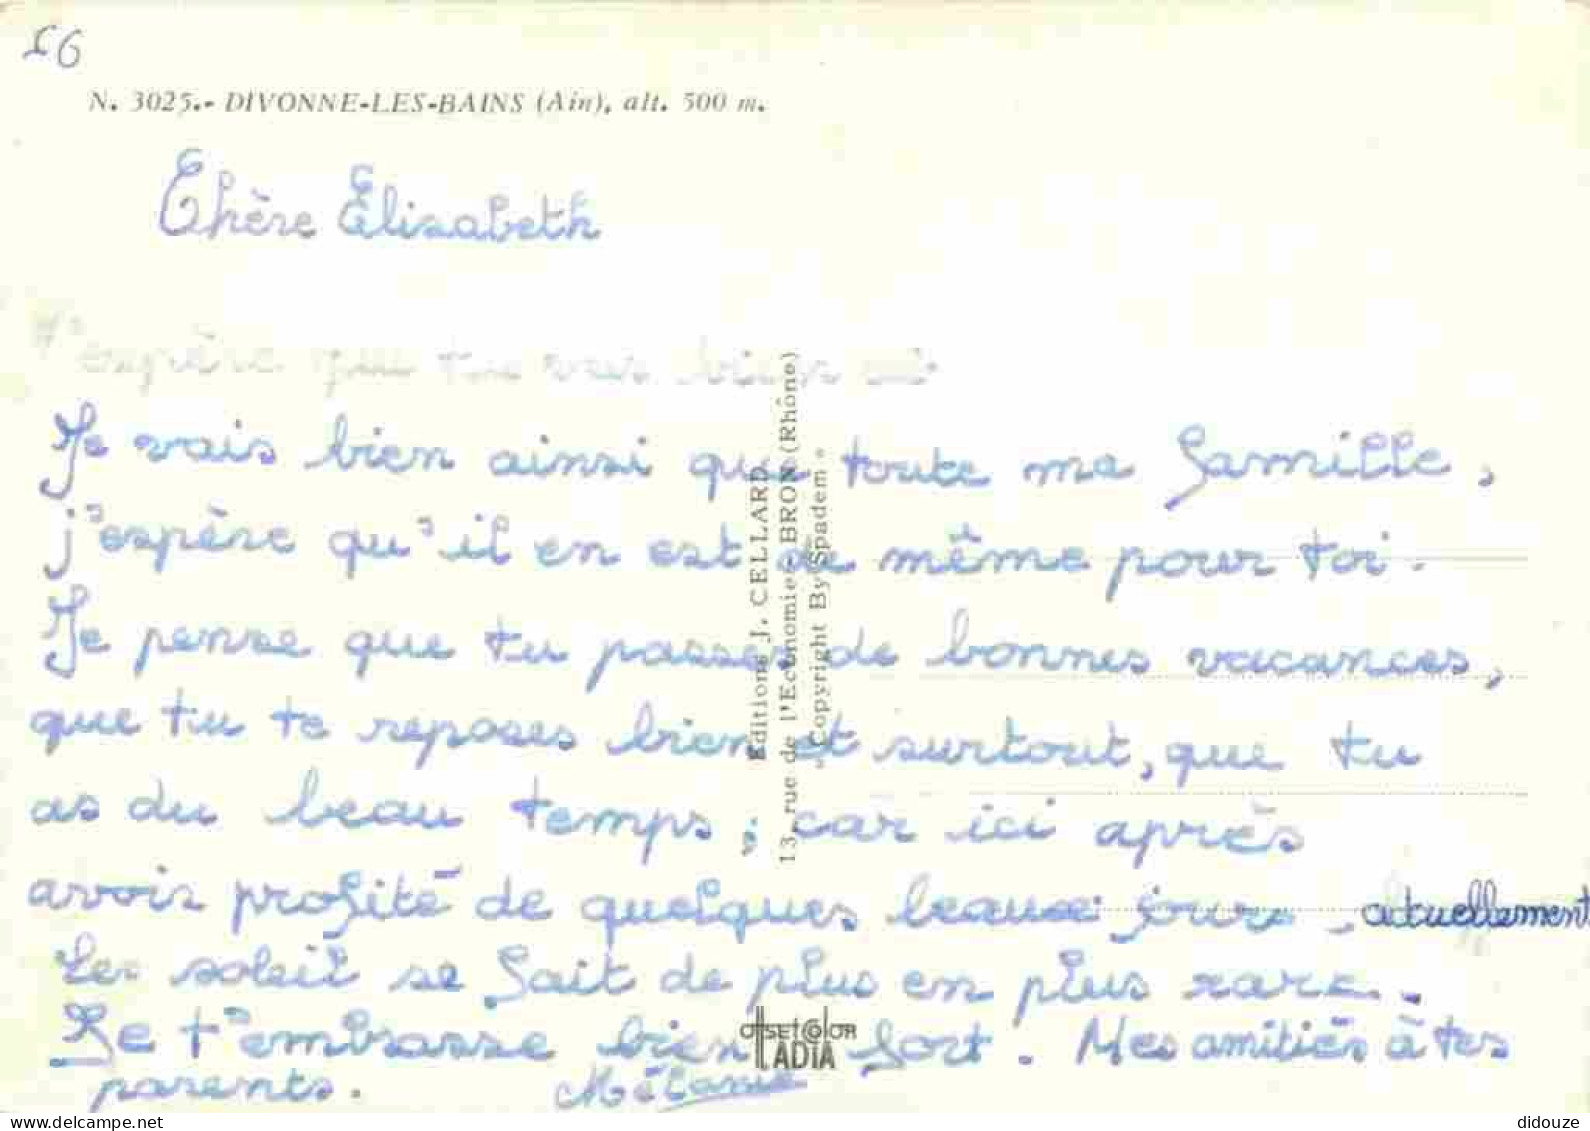 56
N. 3025.- DIVONNE-LES-BAINS (Ain), alt. 500 m.
Chère Elisabeth
J'espère que tu vas bien
Je vais bien ainsi que toute ma famille,
j'espère qu'il en est de même pour toi.
Je pense que tu passes de bonnes vacances,
que tu te reposes bien et surtout, que tu
as du beau temps, car ici après
avoir profité de quelques beaux jours, actuellement
Le soleil se fait de plus en plus rare.
Je t'embrasse bien fort. Mes amitiés à tes
parents. Mélanie
Editions J. CELLARD
13, rue de l'Economie - BRON (Rhône)
"Copyright By Spadem"
OFFSET COLOR
LADIA
www.delcampe.net
didouze